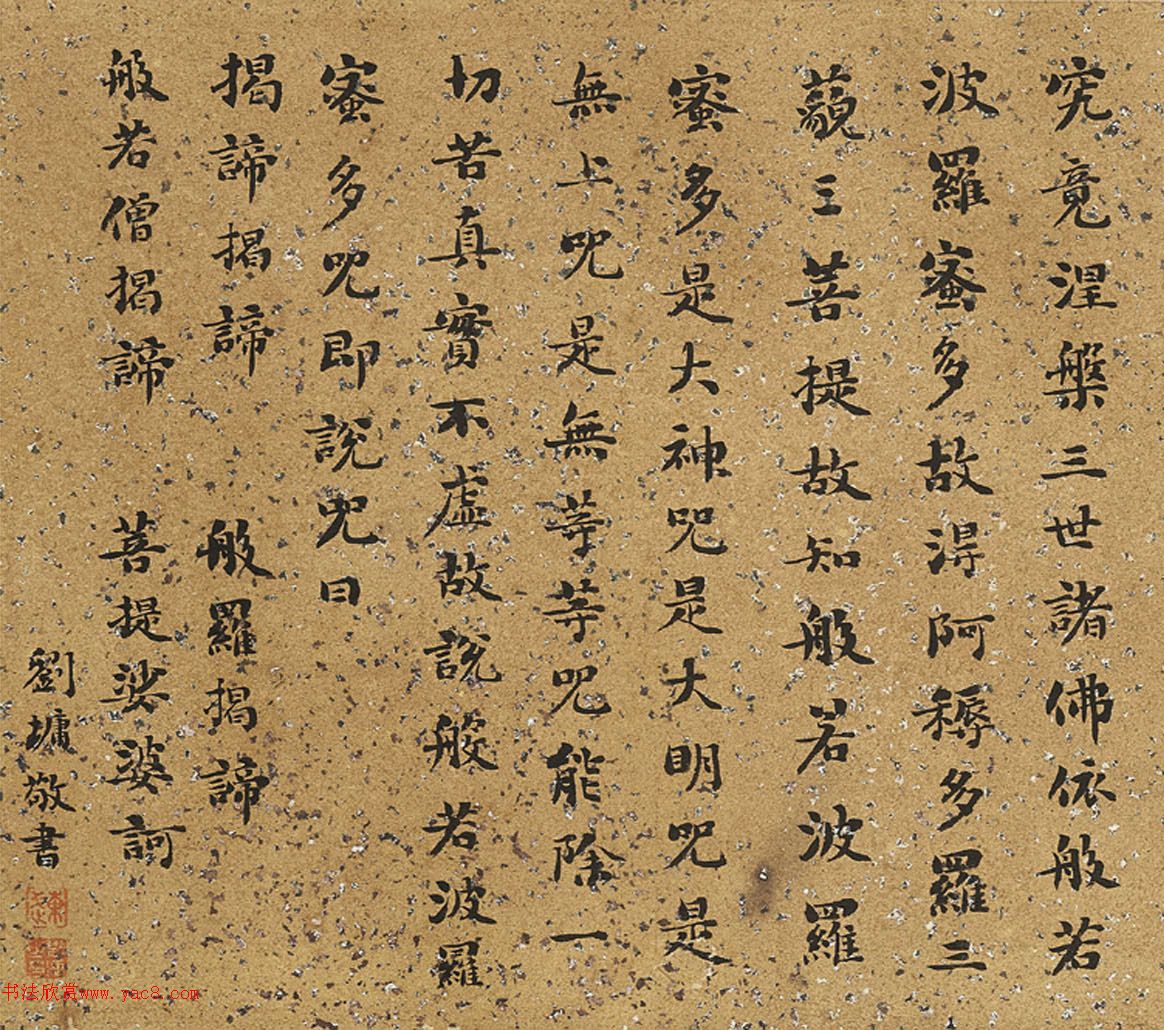 究竟涅槃三世諸佛依般若
波羅蜜多故得阿耨多羅三
藐三菩提故知般若波羅
蜜多是大神咒是大明咒是
無上咒是無等等咒能除一
切苦真實不虛故說般若波羅
蜜多咒即說咒曰
揭諦揭諦 般羅揭諦
般若僧揭諦 菩提娑婆訶
劉墉敬書
书法欣赏www.yac8.com